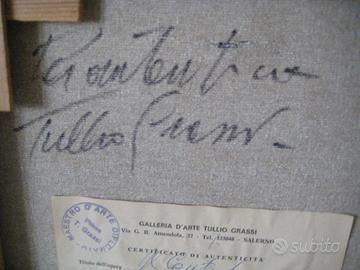 Per autentica
Tullio Grassi
GALLERIA D'ARTE TULLIO GRASSI
Via G. B. Amendola, 37 - Tel. 323048 - SALERNO
CERTIFICATO DI AUTENTICITÀ
Titolo dell'opera
MAESTRO D'ARTE DIPLOMATO
T. Grassi
subito